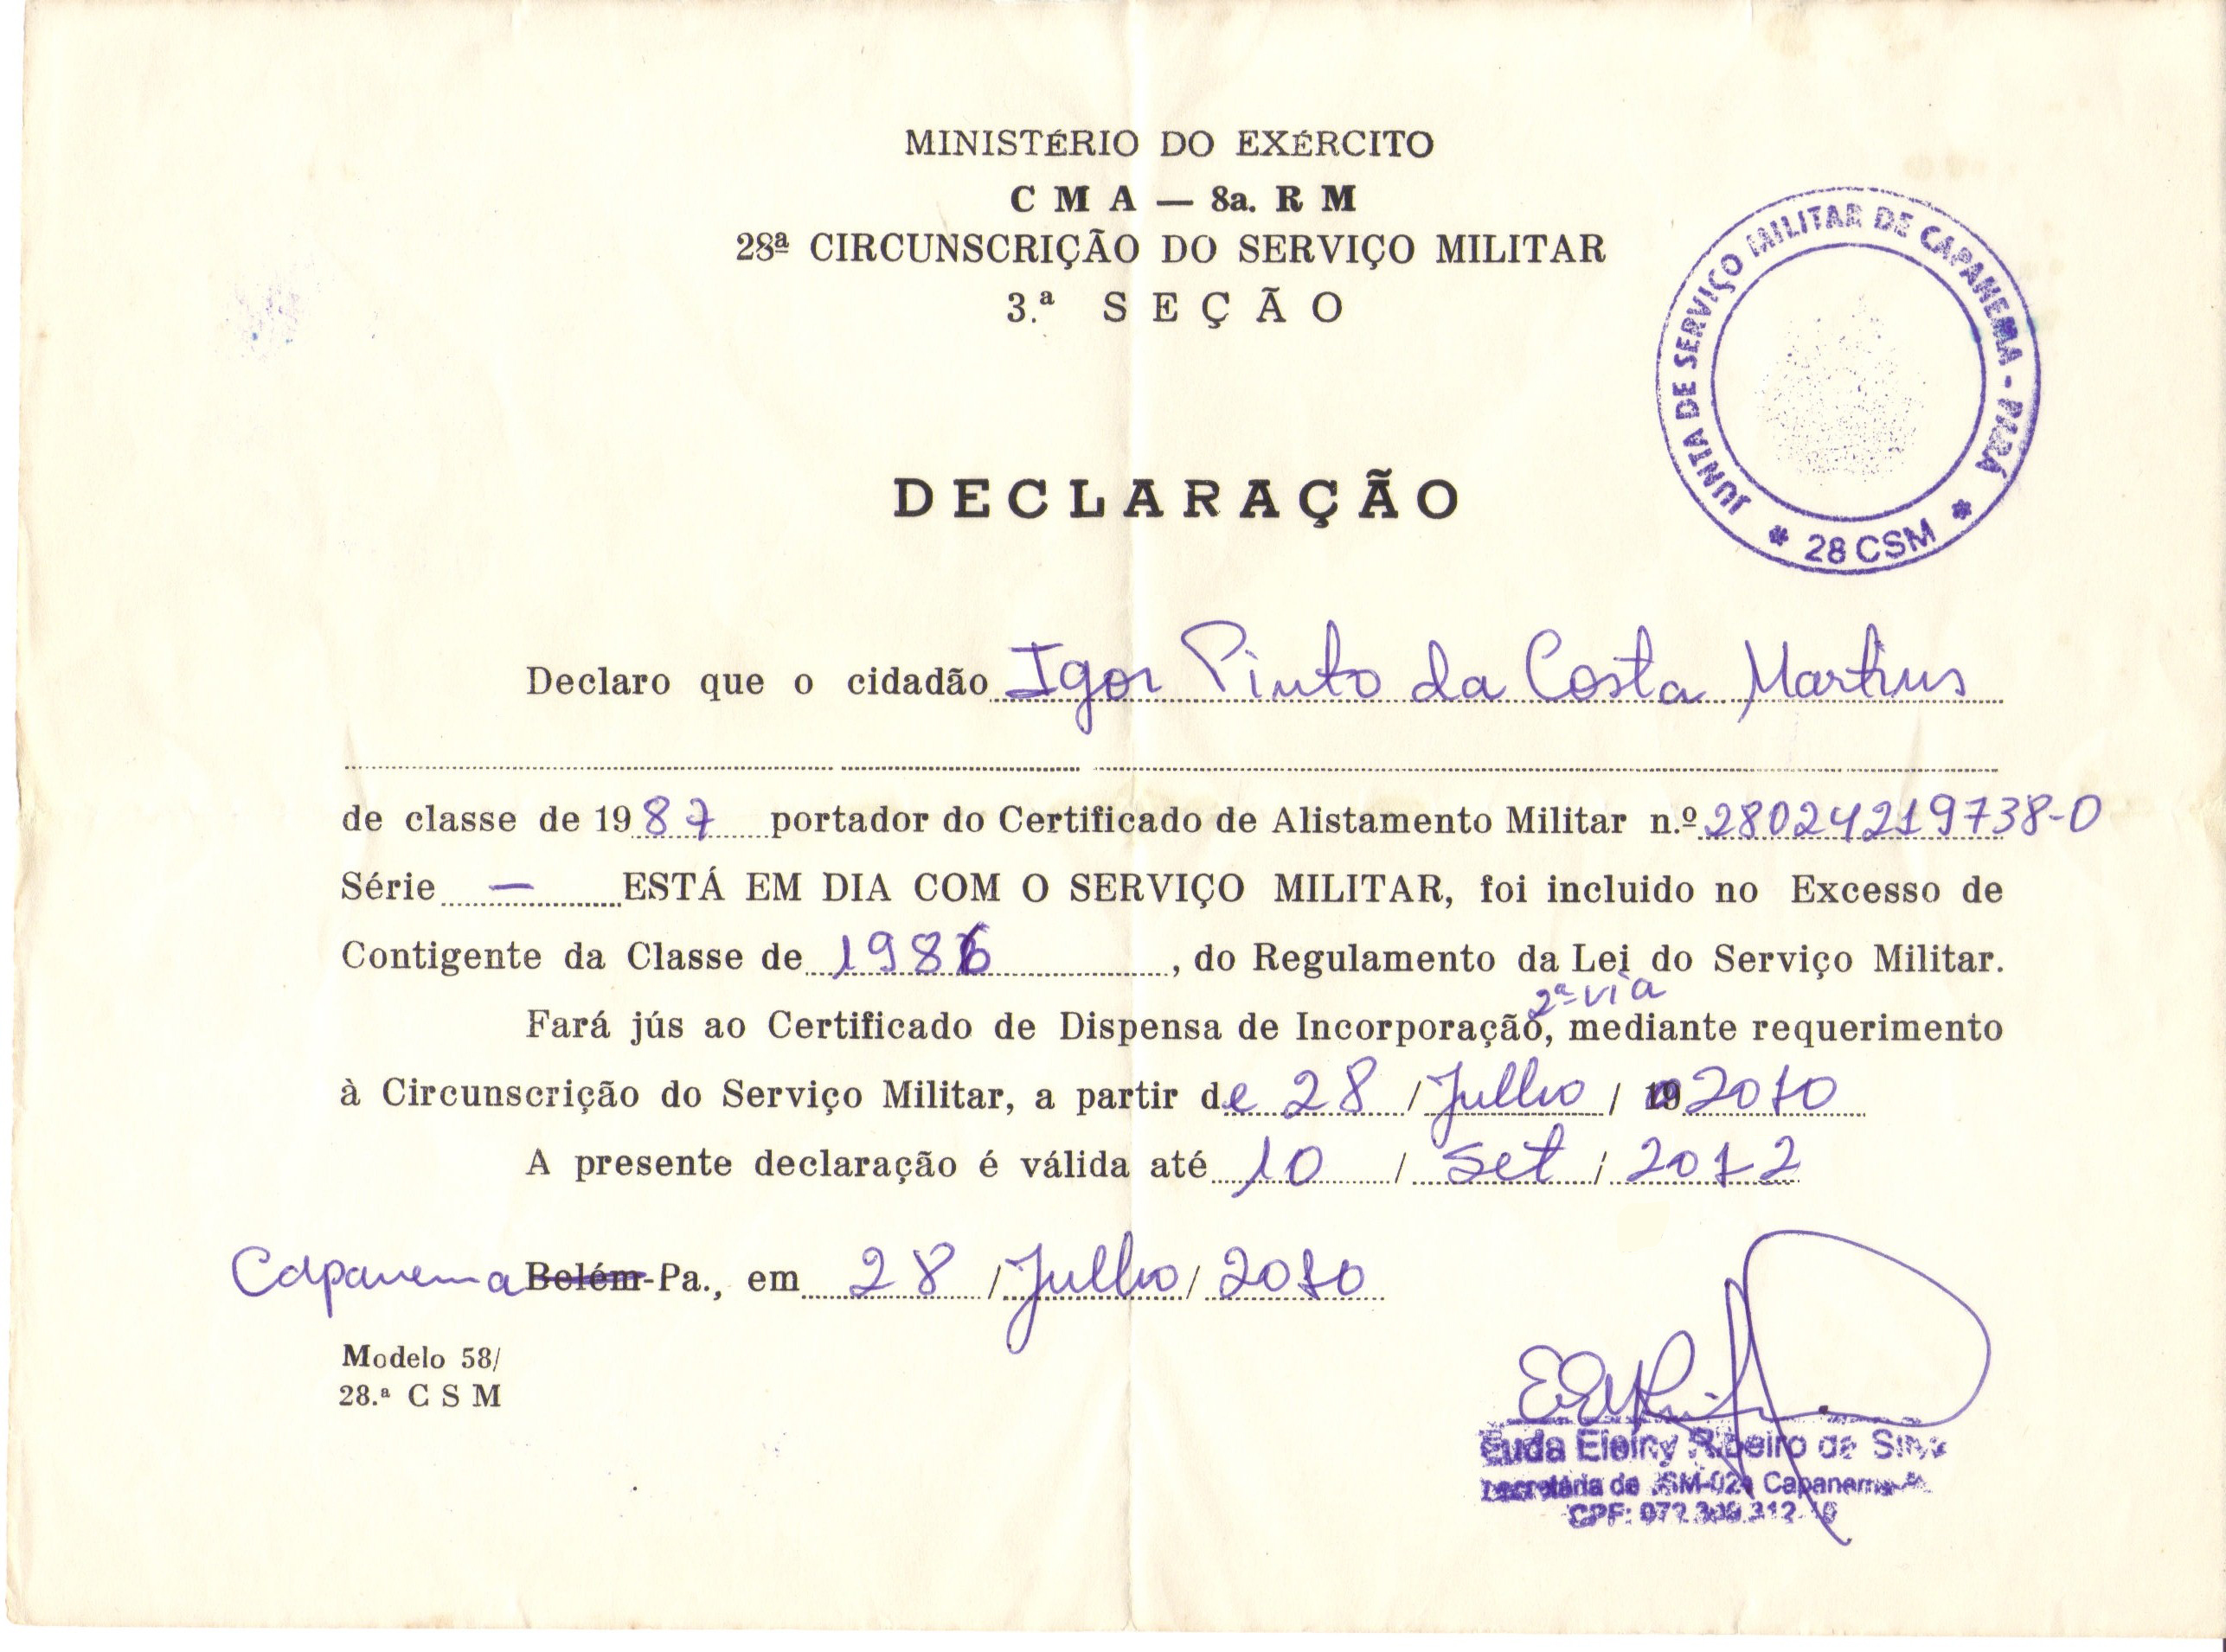 MINISTÉRIO DO EXÉRCITO
C M A — 8a. R M
28ª CIRCUNSCRIÇÃO DO SERVIÇO MILITAR
3.ª SEÇÃO
JUNTA DE SERVIÇO MILITAR DE CAPANEMA - PARÁ
* 28 CSM *
DECLARAÇÃO
Declaro que o cidadão Igor Pinto da Costa Martins
de classe de 1987 portador do Certificado de Alistamento Militar n.º 28024219738-0
Série — ESTÁ EM DIA COM O SERVIÇO MILITAR, foi incluido no Excesso de
Contigente da Classe de 1986, do Regulamento da Lei do Serviço Militar.
2ª via
Fará jús ao Certificado de Dispensa de Incorporação, mediante requerimento
à Circunscrição do Serviço Militar, a partir de 28 / Julho / 2010
A presente declaração é válida até 10 / Set / 2012
Capanema Belém-Pa., em 28 / Julho / 2010
Modelo 58/
28.ª C S M
Ribeiro da Silva
Secretária da Capanema
CPF: